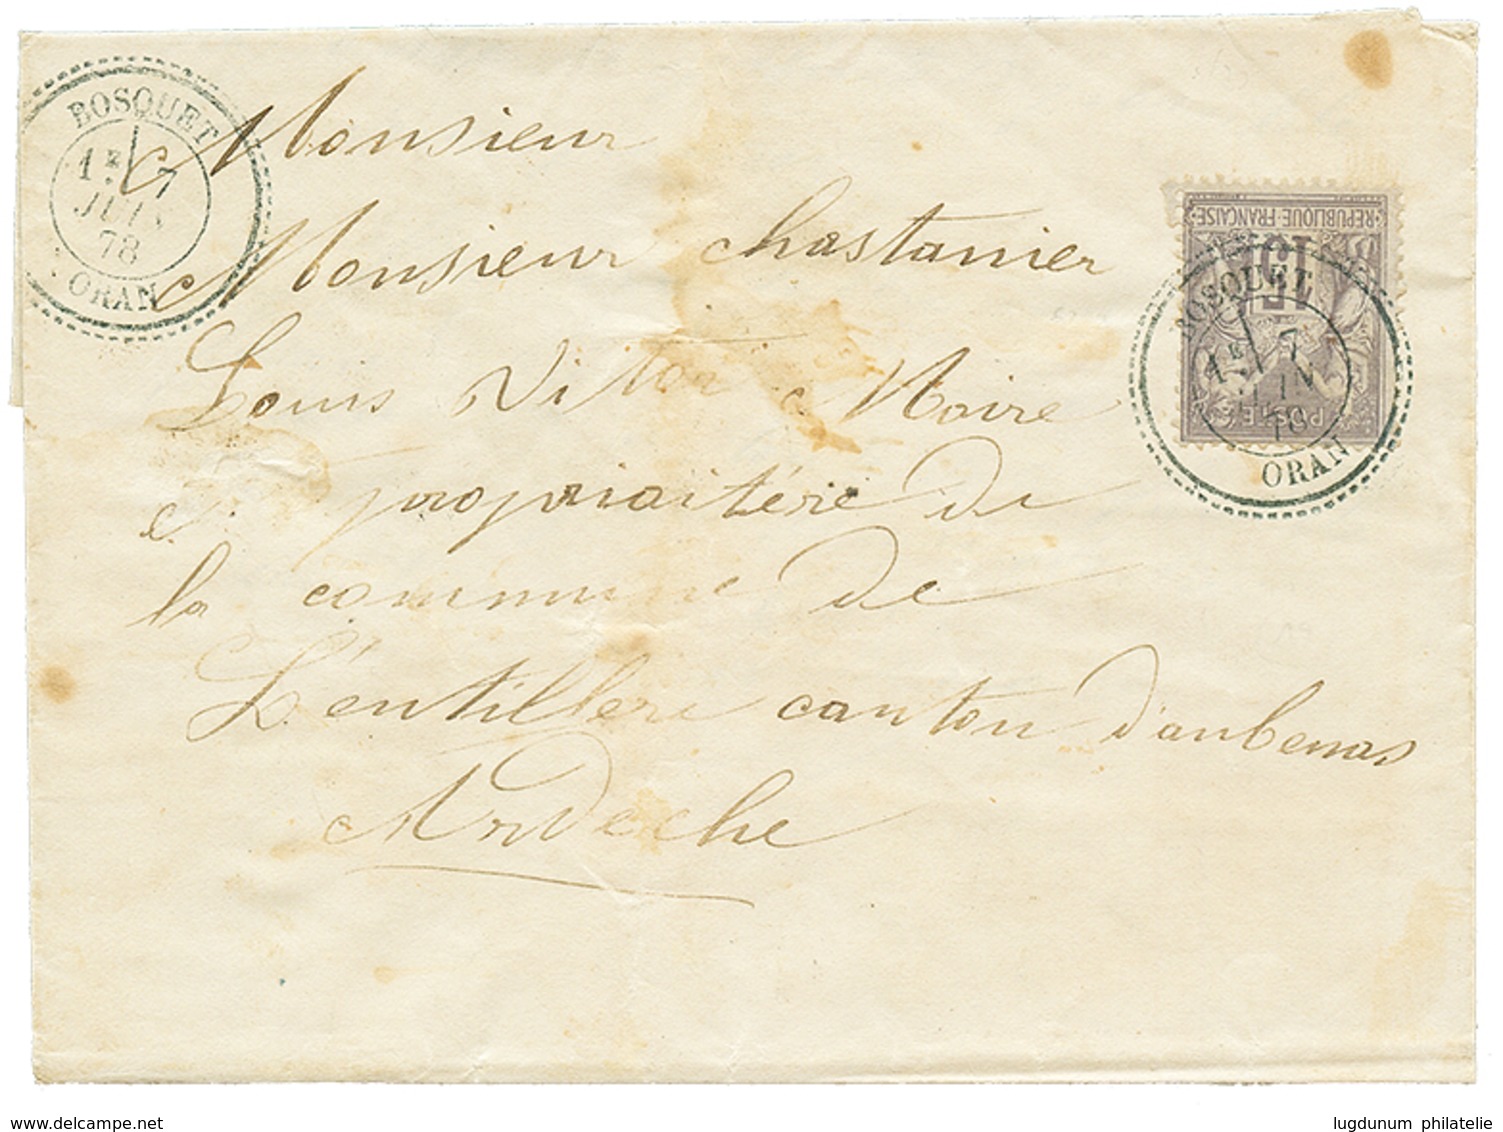 BOSQUET
1E 7
JUIN
78
ORAN
Monsieur
Monsieur Chastanier
Louis Vitor Maire
et propriaitére de
la commune de
L'entillere canton d'aubenas
Ardeche
REPUBLIQUE FRANÇAISE
15
POSTE
BOSQUET
1E 7
JUIN
78
ORAN
www.delcampe.net
lugdunum philatelie